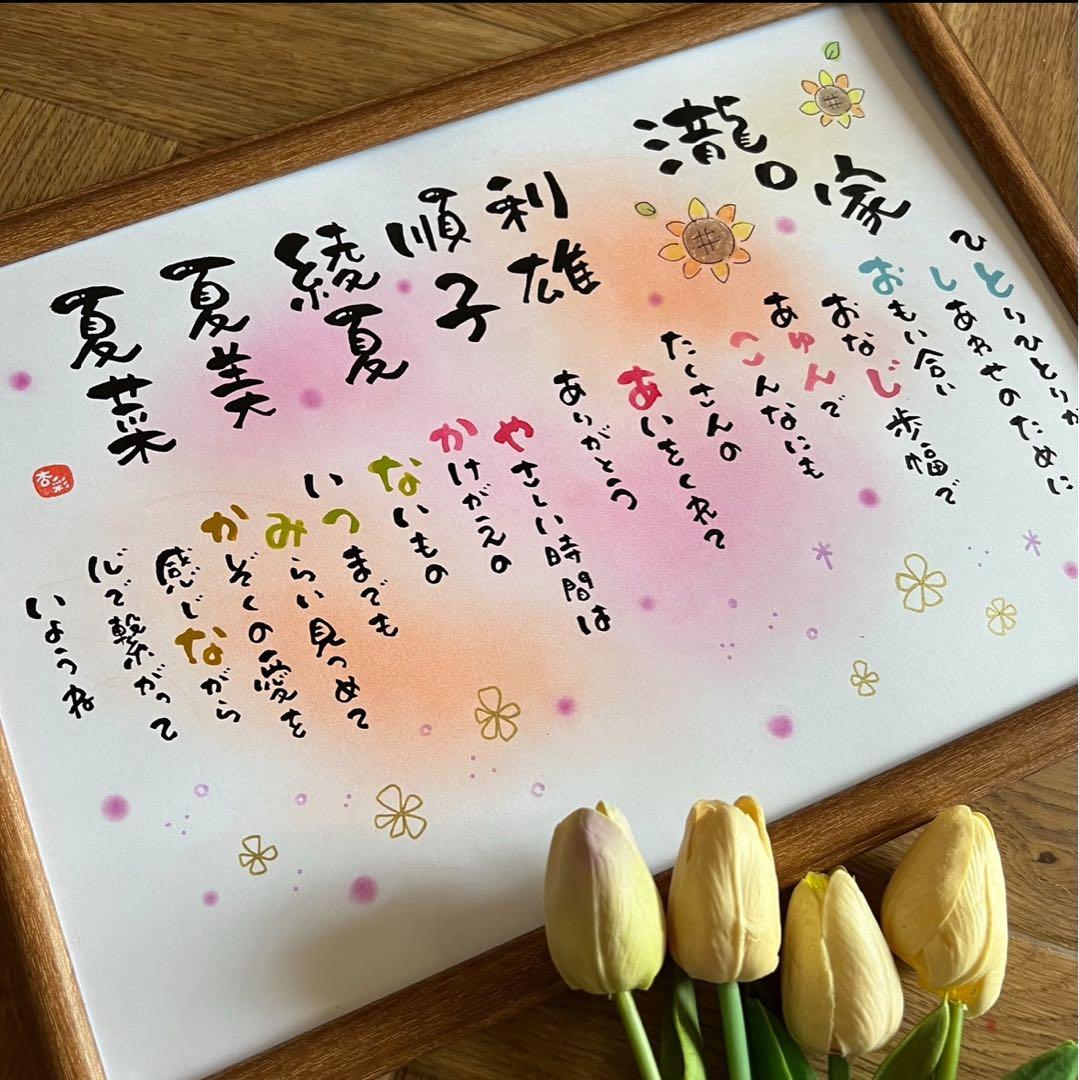 瀧口家
利雄
順子
綾夏
夏美
夏菜
ひとりひとりが
しあわせのために
おもい合い
おなじ歩幅で
あゆんで
こんなにも
たくさんの
あいをくれて
ありがとう
やさしい時間は
かけがえの
ないもの
いつまでも
みらい見つめて
かぞくの愛を
感じながら
心で繋がって
いようね
杏彩